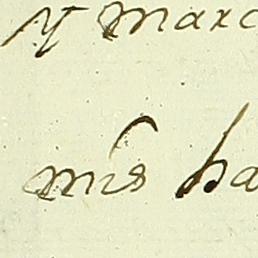 Y marc
mis ha